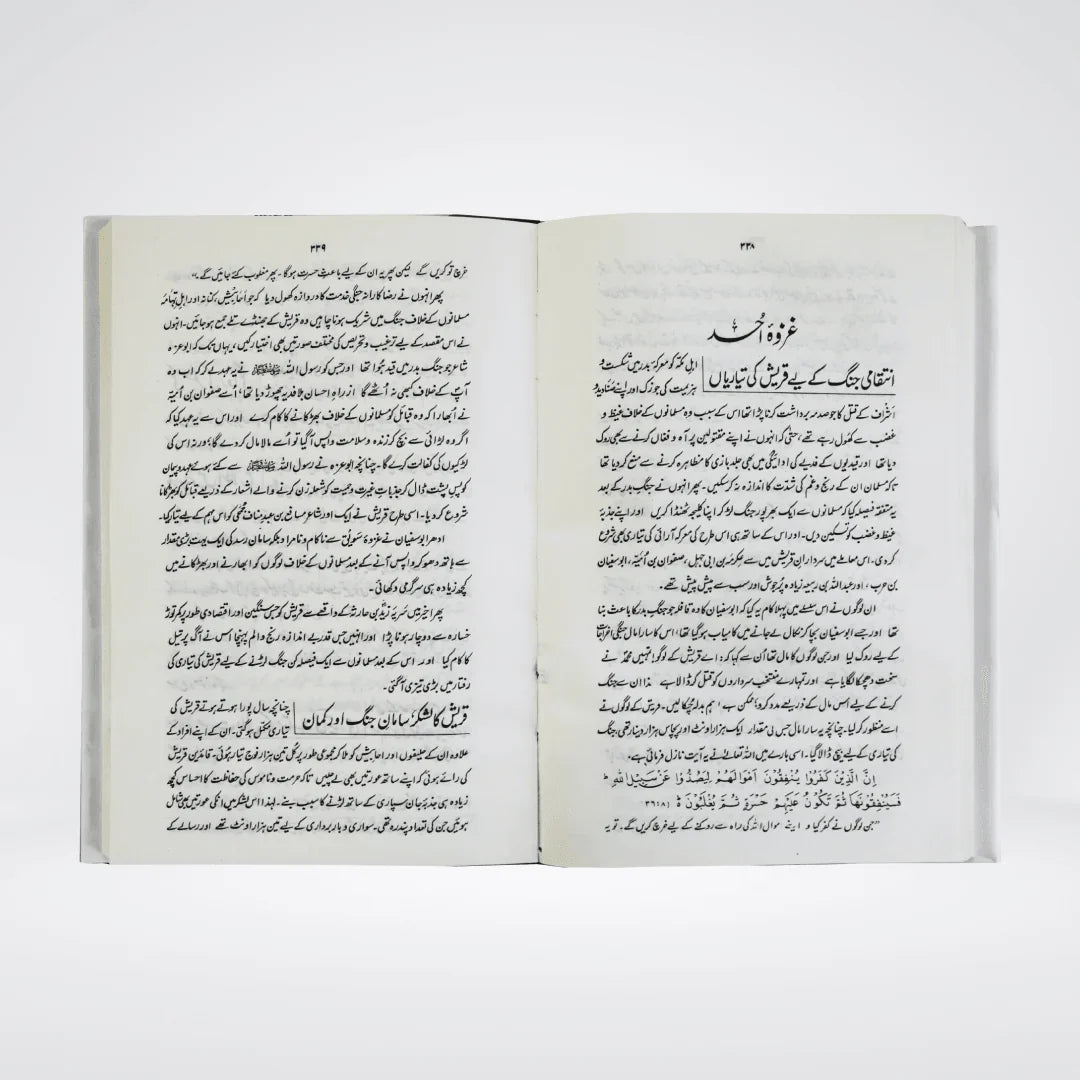 ۳۳۸
غزوۂ احد
انتقامی جنگ کے لیے قریش کی تیاریاں
اہلِ مکہ کو معرکۂ بدر میں شکست و
ہزیمت کی جو زک اور اپنے صنادید و
اشراف کے قتل کا جو صدمہ برداشت کرنا پڑا تھا اس کے سبب وہ مسلمانوں کے خلاف غیظ و
غضب سے کھول رہے تھے، حتیٰ کہ انہوں نے اپنے مقتولین پر آہ و فغاں کرنے سے بھی روک
دیا تھا اور قیدیوں کے فدیے کی ادائیگی میں بھی جلد بازی کا مظاہرہ کرنے سے منع کر دیا تھا
تاکہ مسلمان ان کے رنج و غم کی شدّت کا اندازہ نہ کر سکیں۔ پھر انہوں نے جنگِ بدر کے بعد
یہ متفقہ فیصلہ کیا کہ مسلمانوں سے ایک بھرپور جنگ لڑ کر اپنا کلیجہ ٹھنڈا کریں اور اپنے جذبۂ
غیظ و غضب کو تسکین دیں۔ اور اس کے ساتھ ہی اس طرح کی معرکہ آرائی کی تیاری بھی شروع
کر دی۔ اس معاملے میں سردارانِ قریش میں سے عکرمہ بن ابی جہل، صفوان بن اُمیّہ، ابوسفیان
بن حرب، اور عبداللہ بن ربیعہ زیادہ پُرجوش اور سب سے پیش پیش تھے۔
ان لوگوں نے اس سلسلے میں پہلا کام یہ کیا کہ ابوسفیان کا وہ قافلہ جو جنگِ بدر کا باعث بنا
تھا اور جسے ابوسفیان بچا کر نکال لے جانے میں کامیاب ہو گیا تھا، اس کا سارا مال جنگی اخراجات
کے لیے روک لیا اور جن لوگوں کا مال تھا اُن سے کہا کہ: اے قریش کے لوگو! تمہیں محمّد نے
سخت دھچکا لگایا ہے اور تمہارے منتخب سرداروں کو قتل کر ڈالا ہے لہٰذا ان سے جنگ
کرنے کے لیے اس مال کے ذریعے مدد کرو؛ ممکن ہے ہم بدلہ چکا لیں۔ قریش کے لوگوں نے
اسے منظور کر لیا۔ چنانچہ یہ سارا مال جس کی مقدار ایک ہزار اونٹ اور پچاس ہزار دینار تھی، جنگ
کی تیاری کے لیے بیچ ڈالا گیا۔ اسی بارے میں اللہ تعالیٰ نے یہ آیت نازل فرمائی ہے۔
اِنَّ الَّذِیْنَ کَفَرُوْا یُنْفِقُوْنَ اَمْوَالَھُمْ لِیَصُدُّوْا عَنْ سَبِیْلِ اللہِ ط
فَسَیُنْفِقُوْنَھَا ثُمَّ تَکُوْنُ عَلَیْھِمْ حَسْرَۃً ثُمَّ یُغْلَبُوْنَ ط (۸:۳۶)
”جن لوگوں نے کفر کیا وہ اپنے اموال اللہ کی راہ سے روکنے کے لیے خرچ کریں گے۔ تو یہ
۳۳۹
خرچ تو کریں گے لیکن پھر یہ ان کے لیے باعثِ حسرت ہوگا۔ پھر مغلوب کئے جائیں گے۔“
پھر انہوں نے رضاکارانہ جنگی خدمت کا دروازہ کھول دیا کہ جو احابیش، کنانہ اور اہلِ تہامہ
مسلمانوں کے خلاف جنگ میں شریک ہونا چاہیں وہ قریش کے جھنڈے تلے جمع ہو جائیں۔ انہوں
نے اس مقصد کے لیے ترغیب و تحریص کی مختلف صورتیں بھی اختیار کیں، یہاں تک کہ ابوعزہ
شاعر جو جنگِ بدر میں قید ہوا تھا اور جس کو رسول اللہ ﷺ نے یہ عہد لے کر کہ اب وہ
آپؐ کے خلاف کبھی نہ اُٹھے گا ازراہِ احسان بلا فدیہ چھوڑ دیا تھا، اُسے صفوان بن اُمیّہ
نے اُبھارا کہ وہ قبائل کو مسلمانوں کے خلاف بھڑکانے کا کام کرے اور اس سے یہ عہد کیا کہ
اگر وہ لڑائی سے بچ کر زندہ و سلامت واپس آ گیا تو اُسے مالا مال کر دے گا؛ ورنہ اس کی
لڑکیوں کی کفالت کرے گا۔ چنانچہ ابوعزہ نے رسول اللہ ﷺ سے کئے ہوئے عہد و پیمان
کو پسِ پشت ڈال کر جذباتِ غیرت و حمیت کو شعلہ زن کرنے والے اشعار کے ذریعے قبائل کو بھڑکانا
شروع کر دیا۔ اسی طرح قریش نے ایک اور شاعر مسافع بن عبد مناف جمحی کو اس مہم کے لیے تیار کیا۔
ادھر ابوسفیان نے غزوۂ سویق سے ناکام و نامراد بلکہ سامانِ رسد کی ایک بہت بڑی مقدار
سے ہاتھ دھو کر واپس آنے کے بعد مسلمانوں کے خلاف لوگوں کو ابھارنے اور بھڑکانے میں
کچھ زیادہ ہی سرگرمی دکھائی۔
پھر اخیر میں سریۂ زیدؓ بن حارثہ کے واقعے سے قریش کو جس سنگین اور اقتصادی طور پر کمر توڑ
خسارہ سے دوچار ہونا پڑا اور انہیں جس قدر بے اندازہ رنج و الم پہنچا اس نے آگ پر تیل
کا کام کیا اور اس کے بعد مسلمانوں سے ایک فیصلہ کن جنگ لڑنے کے لیے قریش کی تیاری کی
رفتار میں بڑی تیزی آ گئی۔
قریش کا لشکر؛ سامانِ جنگ اور کمان
چنانچہ سال پورا ہوتے ہوتے قریش کی
تیاری مکمل ہو گئی۔ ان کے اپنے افراد کے
علاوہ ان کے حلیفوں اور احابیش کو ملا کر مجموعی طور پر کل تین ہزار فوج تیار ہوئی۔ قائدینِ قریش
کی رائے ہوئی کہ اپنے ساتھ عورتیں بھی لے چلیں تاکہ حرمت و ناموس کی حفاظت کا احساس کچھ
زیادہ ہی جذبۂ جاں سپاری کے ساتھ لڑنے کا سبب بنے۔ لہٰذا اس لشکر میں انکی عورتیں بھی شامل
ہوئیں جن کی تعداد پندرہ تھی۔ سواری و باربرداری کے لیے تین ہزار اونٹ تھے اور رسالے کے